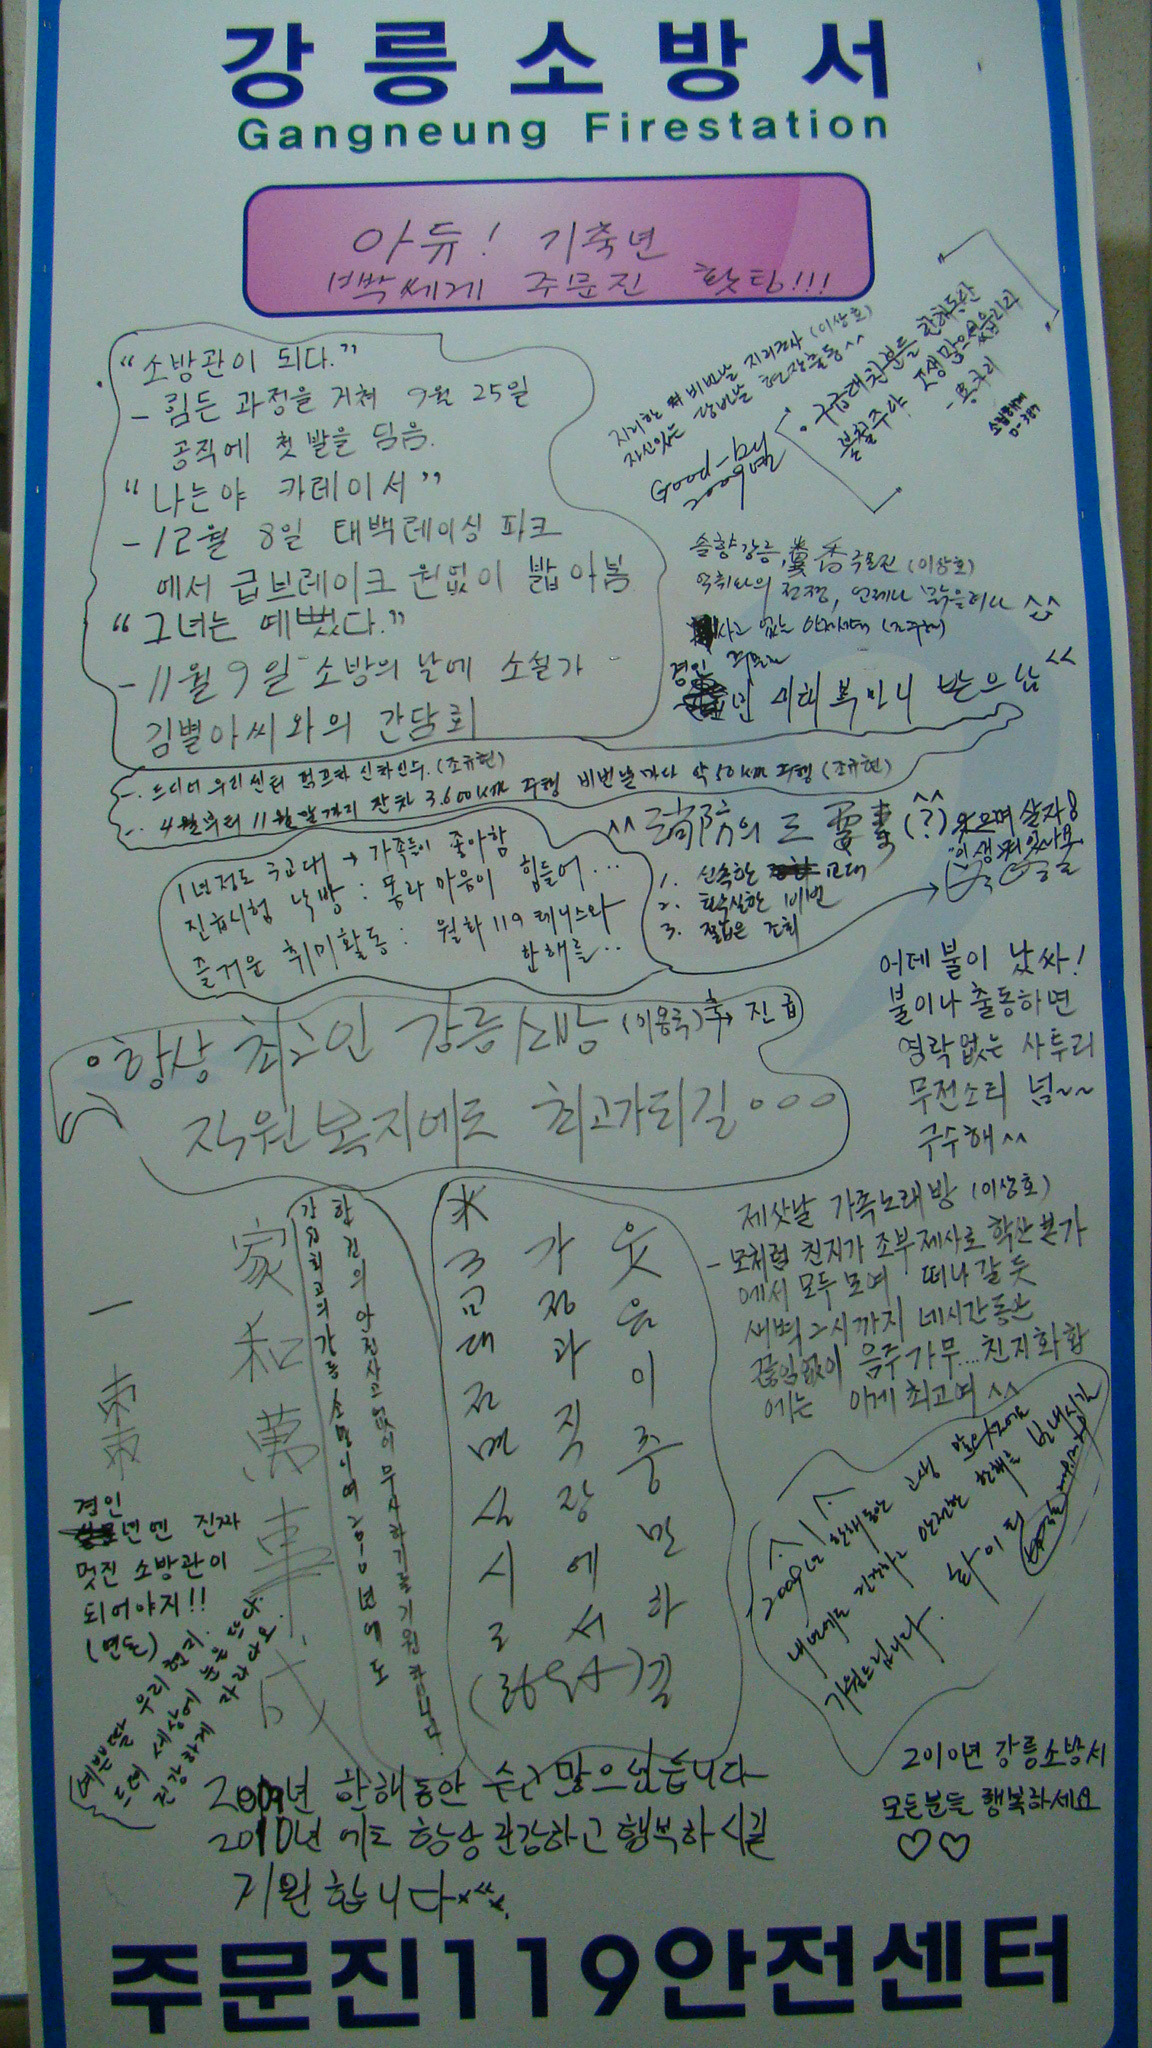 강릉소방서
Gangneung Firestation
아듀! 기축년
빡세게 주문진 홧팅!!!
"소방관이 되다."
- 힘든 과정을 거쳐 9월 25일
공직에 첫 발을 딛음.
"나는야 카레이서"
- 12월 8일 태백레이싱 파크
에서 급브레이크 원없이 밟아봄
"그녀는 예뻤다."
- 11월 9일 소방의 날에 소설가
김별아씨와의 간담회
지리한 비번날 지리조사 (이상호)
자신있는 당비날 현장출동^^
Good-
2009년
구급대원분들 한해동안
불철주야 고생많으셨습니다
솔향강릉, 糞香주문진 (이상호)
악취와의 전쟁, 언제나 맑을려나 ^^
사고 없는
경인
년 새해 복 마니 받으삼^^
- 드디어 우리센터 펌프차 신차인수. (조규현)
- 4월부터 11월말까지 잔차 3,600km 주행 비번날마다 약 50km 주행 (조규현)
1년정도 3교대 → 가족들이 좋아함
진급시험 낙방 : 몸과 마음이 힘들어...
즐거운 취미활동 : 월화119 테니스와
한해를...
^^ 消防의 三 要素 (^^?)
1. 신속한 교대
2. 확실한 비번
3. 짧은 조회
웃으며 살자
어데 불이 났싸!
불이나 출동하면
영락없는 사투리
무전소리 넘~~
구수해^^
항상 최고인 강릉소방 (이용욱) 축 진급
직원복지에도 최고가되길...
제삿날 가족노래방 (이상호)
- 모처럼 친지가 조부제사로 학산본가
에서 모두모여 떠나갈듯
새벽2시까지 네시간동안
끊임없이 음주가무... 친지화합
에는 이게 최고여^^
家和萬事成
강릉최고의 강릉소방이며 2010년에도
한건의 안전사고없이 무사하기를 기원합니다.
웃음이 충만하길
가정과 직장에서
3교대 전면실시로
경인
년엔 진짜
멋진 소방관이
되어야지!!
예쁜딸 우리현지.
드뎌 세상에 눈을 뜨다.
건강하게 자라다오.
2009년 한해동안 고생 많으셨어요
내년에도 건강하고 안전한 한해를 보내시길
기원드립니다. 화이팅
2009년 한해동안 수고많으셨습니다
2010년 에도 항상 건강하고 행복하시길
기원합니다
2010년 강릉소방서
모든분들 행복하세요
♡♡
주문진119안전센터